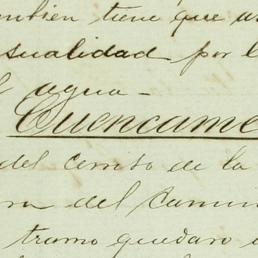 mbien tiene que as
sualidad por l
l agua -
Cuencame
del cerrito de la
ra del camin
tramo quedaro